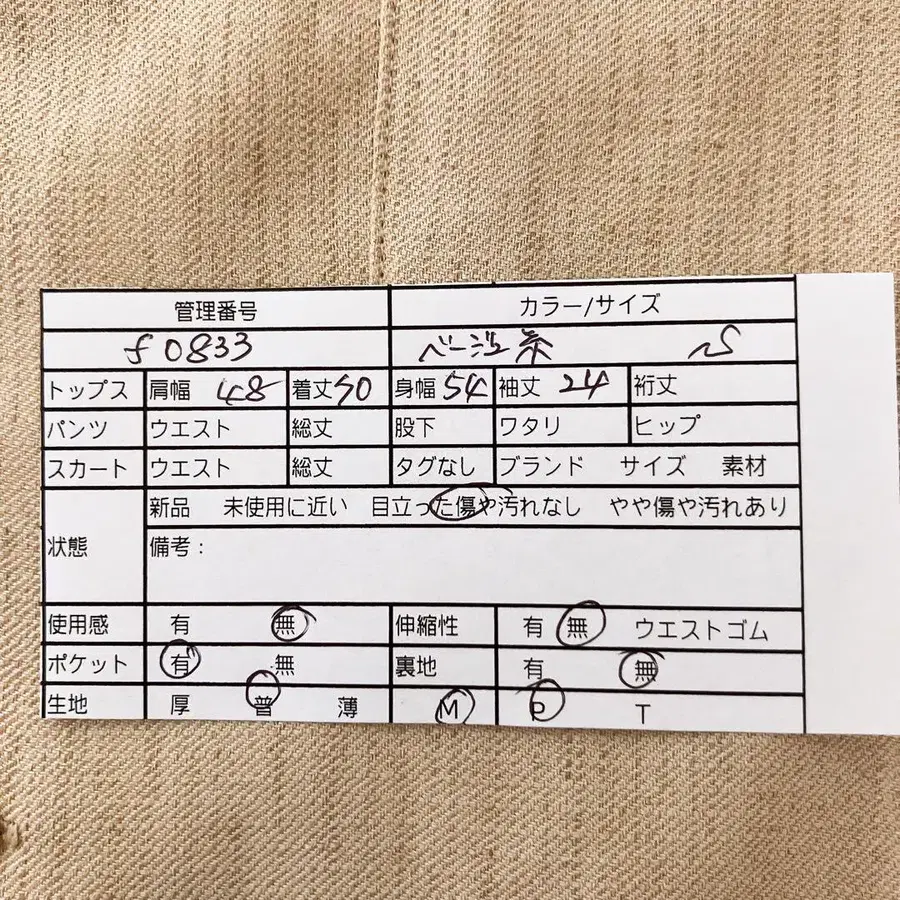 管理番号 カラー/サイズ
f0833 ベージュ系 S
トップス 肩幅 48 着丈 70 身幅 54 袖丈 24 裄丈
パンツ ウエスト 総丈 股下 ワタリ ヒップ
スカート ウエスト 総丈 タグなし ブランド サイズ 素材
新品 未使用に近い 目立った傷や汚れなし やや傷や汚れあり
状態 備考:
使用感 有 無 伸縮性 有 無 ウエストゴム
ポケット 有 無 裏地 有 無
生地 厚 普 薄 M P T